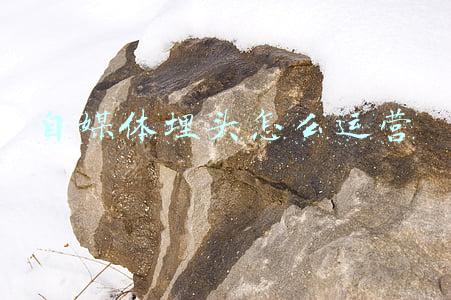 自媒体埋头怎么运营